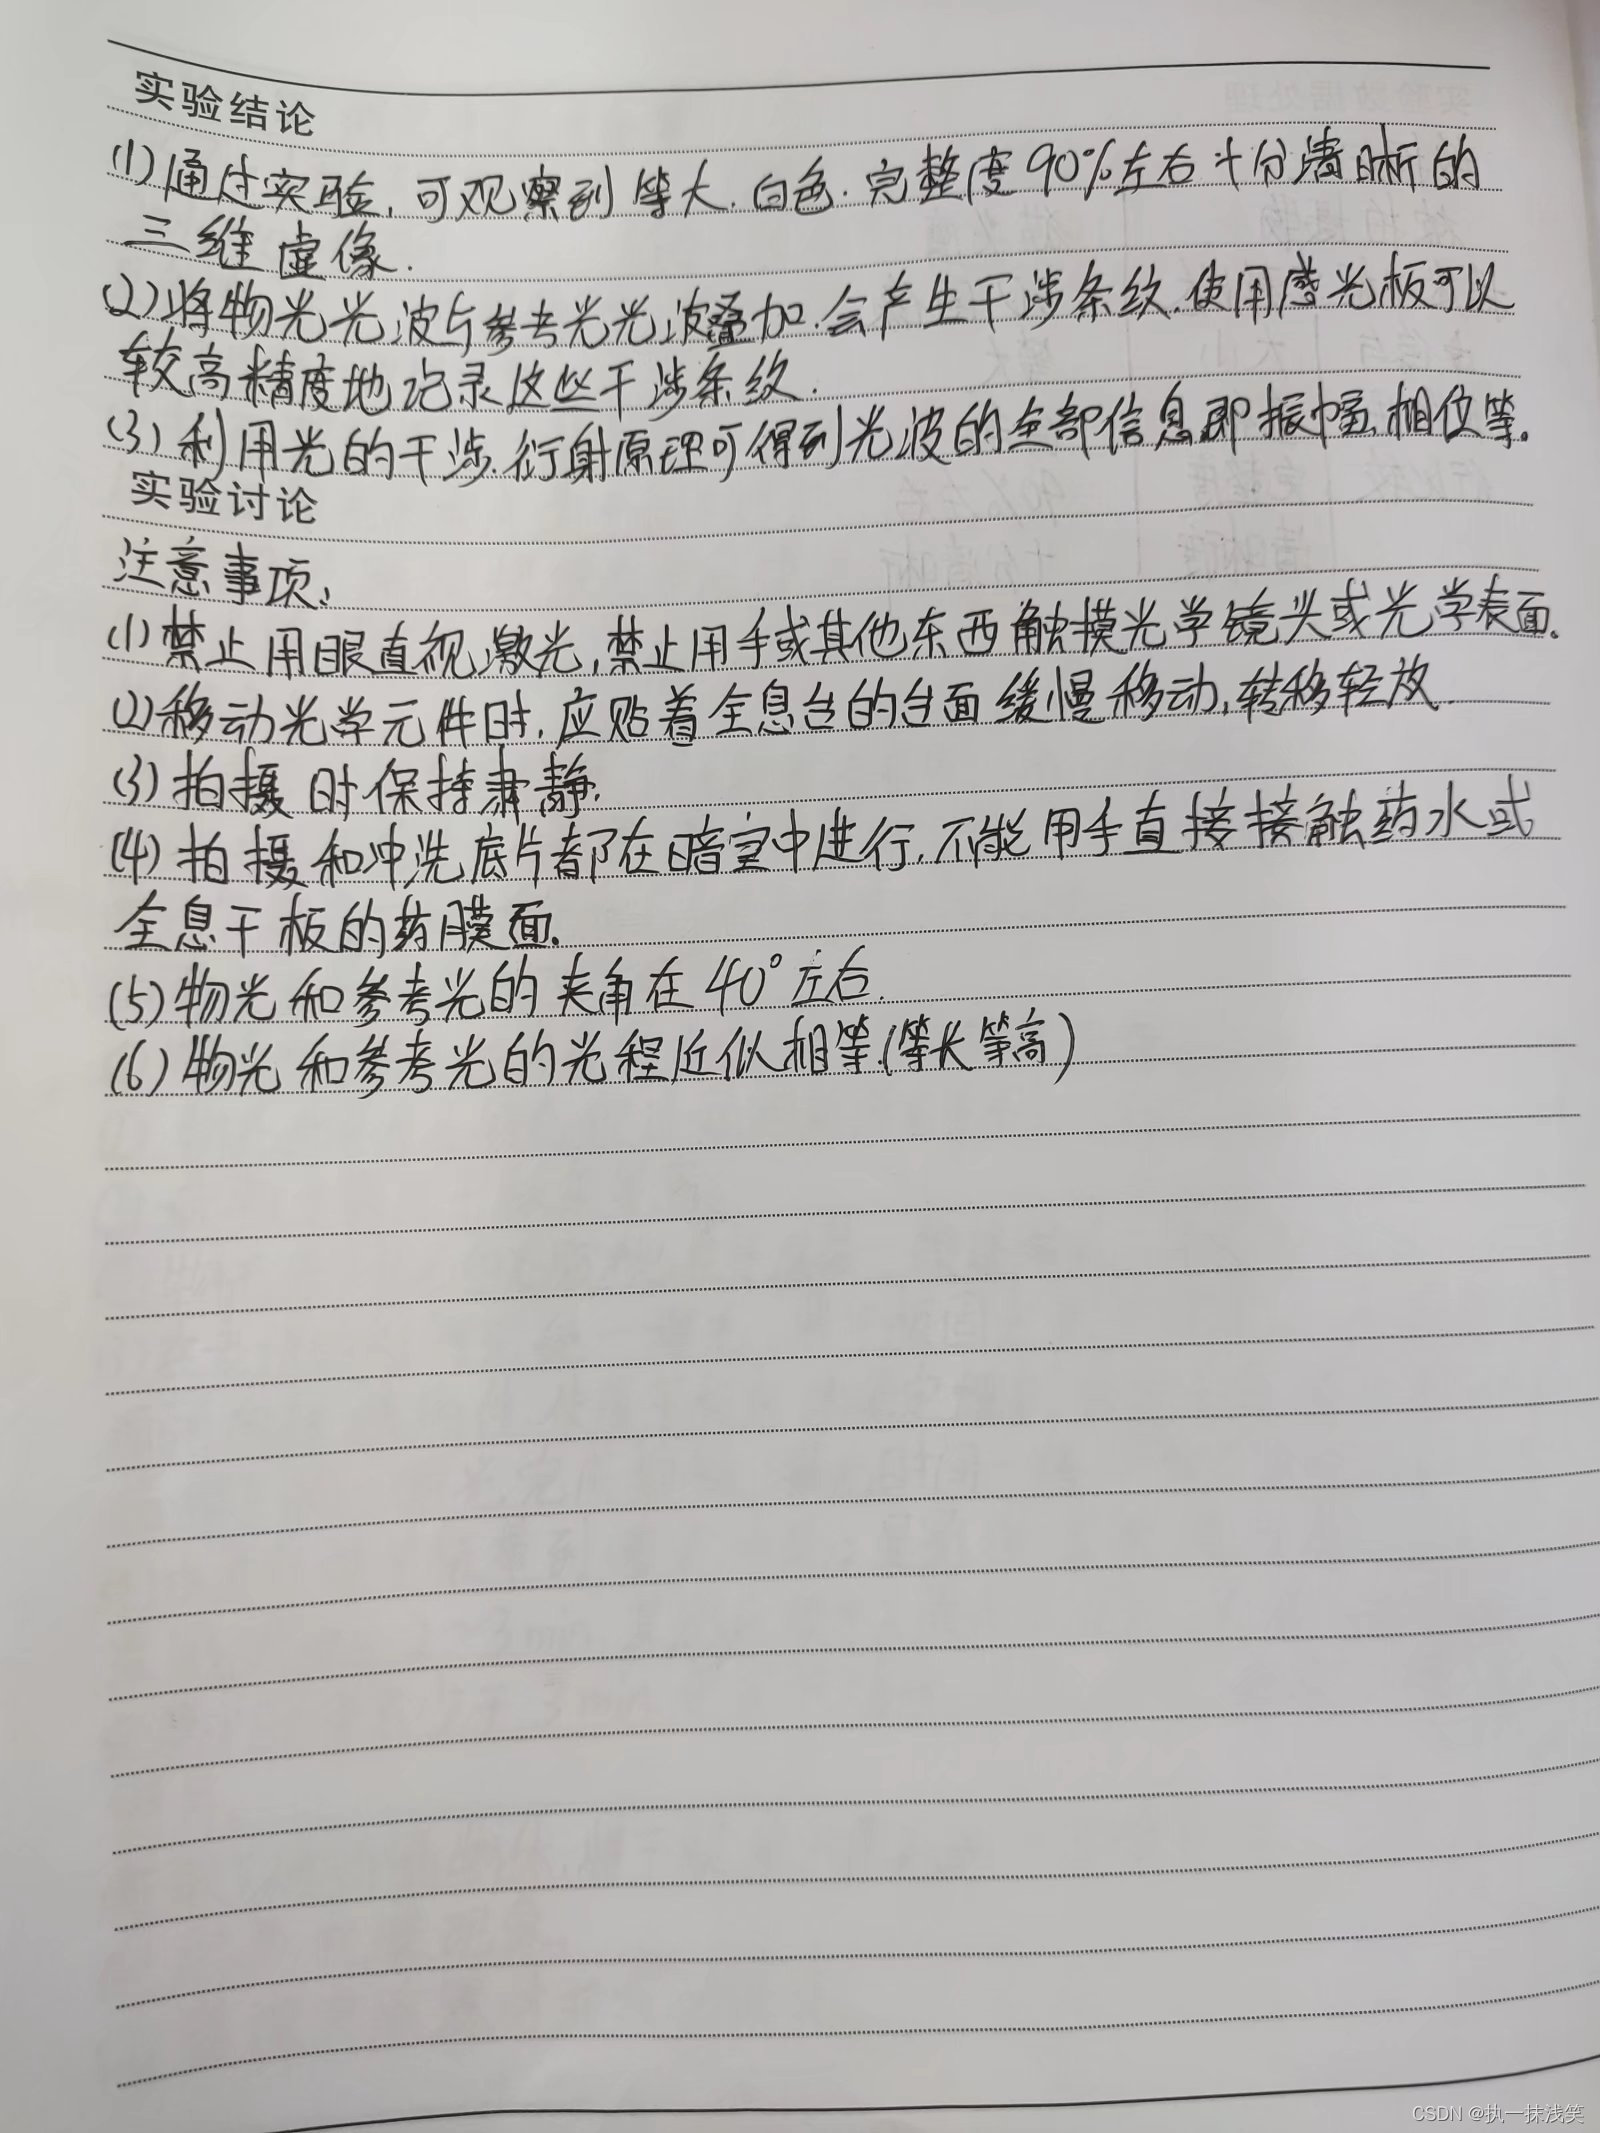 实验结论
(1)通过实验,可观察到等大.白色.完整度90%左右十分清晰的
三维虚像.
(2)将物光光波与参考光光波叠加.会产生干涉条纹.使用感光板可以
较高精度地记录这些干涉条纹.
(3)利用光的干涉.衍射原理可得到光波的全部信息即振幅、相位等.
实验讨论
注意事项:
(1)禁止用眼直视激光,禁止用手或其他东西触摸光学镜头或光学表面.
(2)移动光学元件时,应贴着全息台的台面缓慢移动,转移轻放.
(3)拍摄时保持肃静.
(4)拍摄和冲洗底片都在暗室中进行,不能用手直接接触药水或
全息干板的药膜面.
(5)物光和参考光的夹角在40°左右.
(6)物光和参考光的光程近似相等.(等长等高)
CSDN @执一抹浅笑